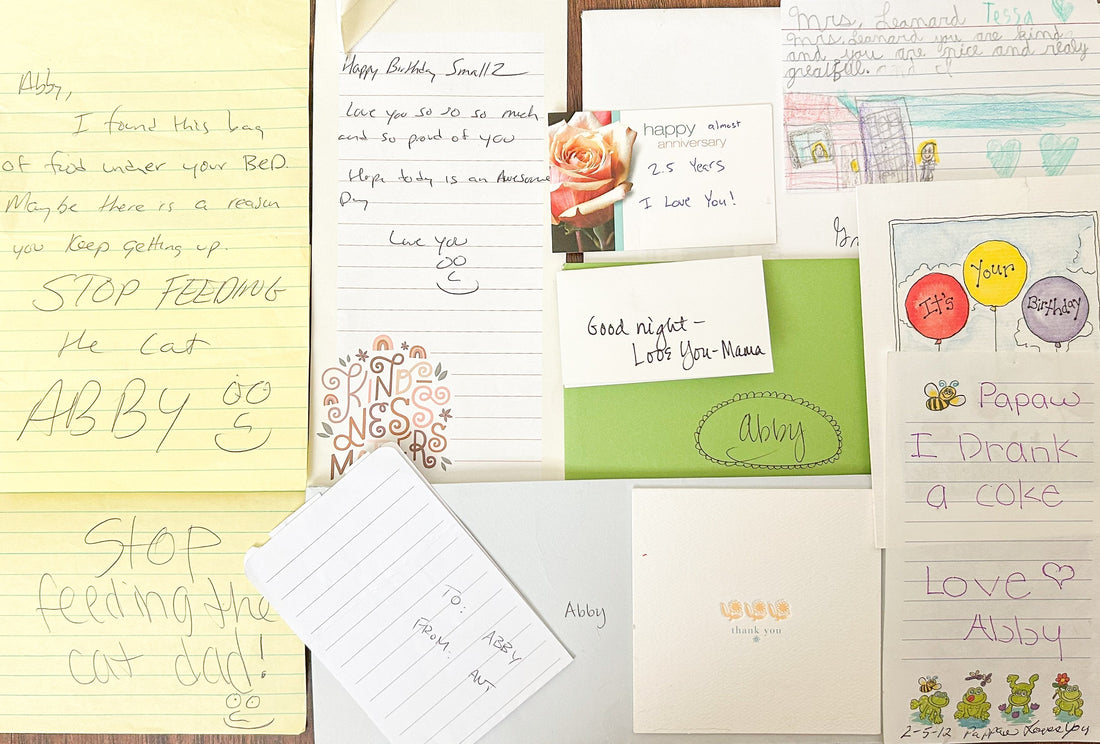 Abby,
I found this bag
of food under your BeD.
Maybe there is a reason
you keep getting up.
STOP FEEDING
the cat
ABBY
Stop
feeding the
cat dad!
Happy Birthday Smallz
Love you so so so much
and so proud of you
Hope today is an Awesome
Day
Love you
KIND-
NESS
MATTERS
TO: ABBY
FROM: ANT
happy almost
anniversary
2.5 Years
I Love You!
Good night -
Love You - Mama
abby
Abby
thank you
Mrs. Leanard Tessa
Mrs. Leanard you are kind
and you are nice and realy
greatfull. and
It's Your Birthday
Papaw
I Drank
a coke
Love
Abby
2-5-12 Pappaw Loves You